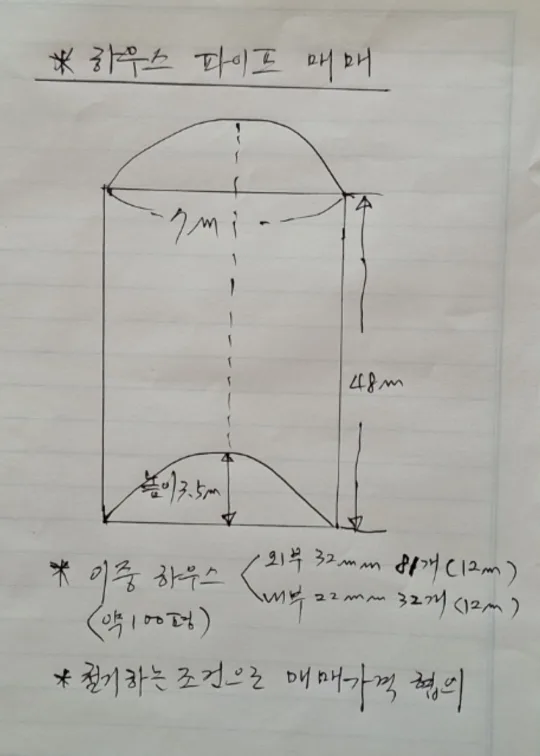 * 하우스 파이프 매매
7m
48m
높이 3.5m
* 이중 하우스 외부 32mm 81개 (12m)
내부 22mm 32개 (12m)
(약 100평)
* 철거하는 조건으로 매매가격 협의